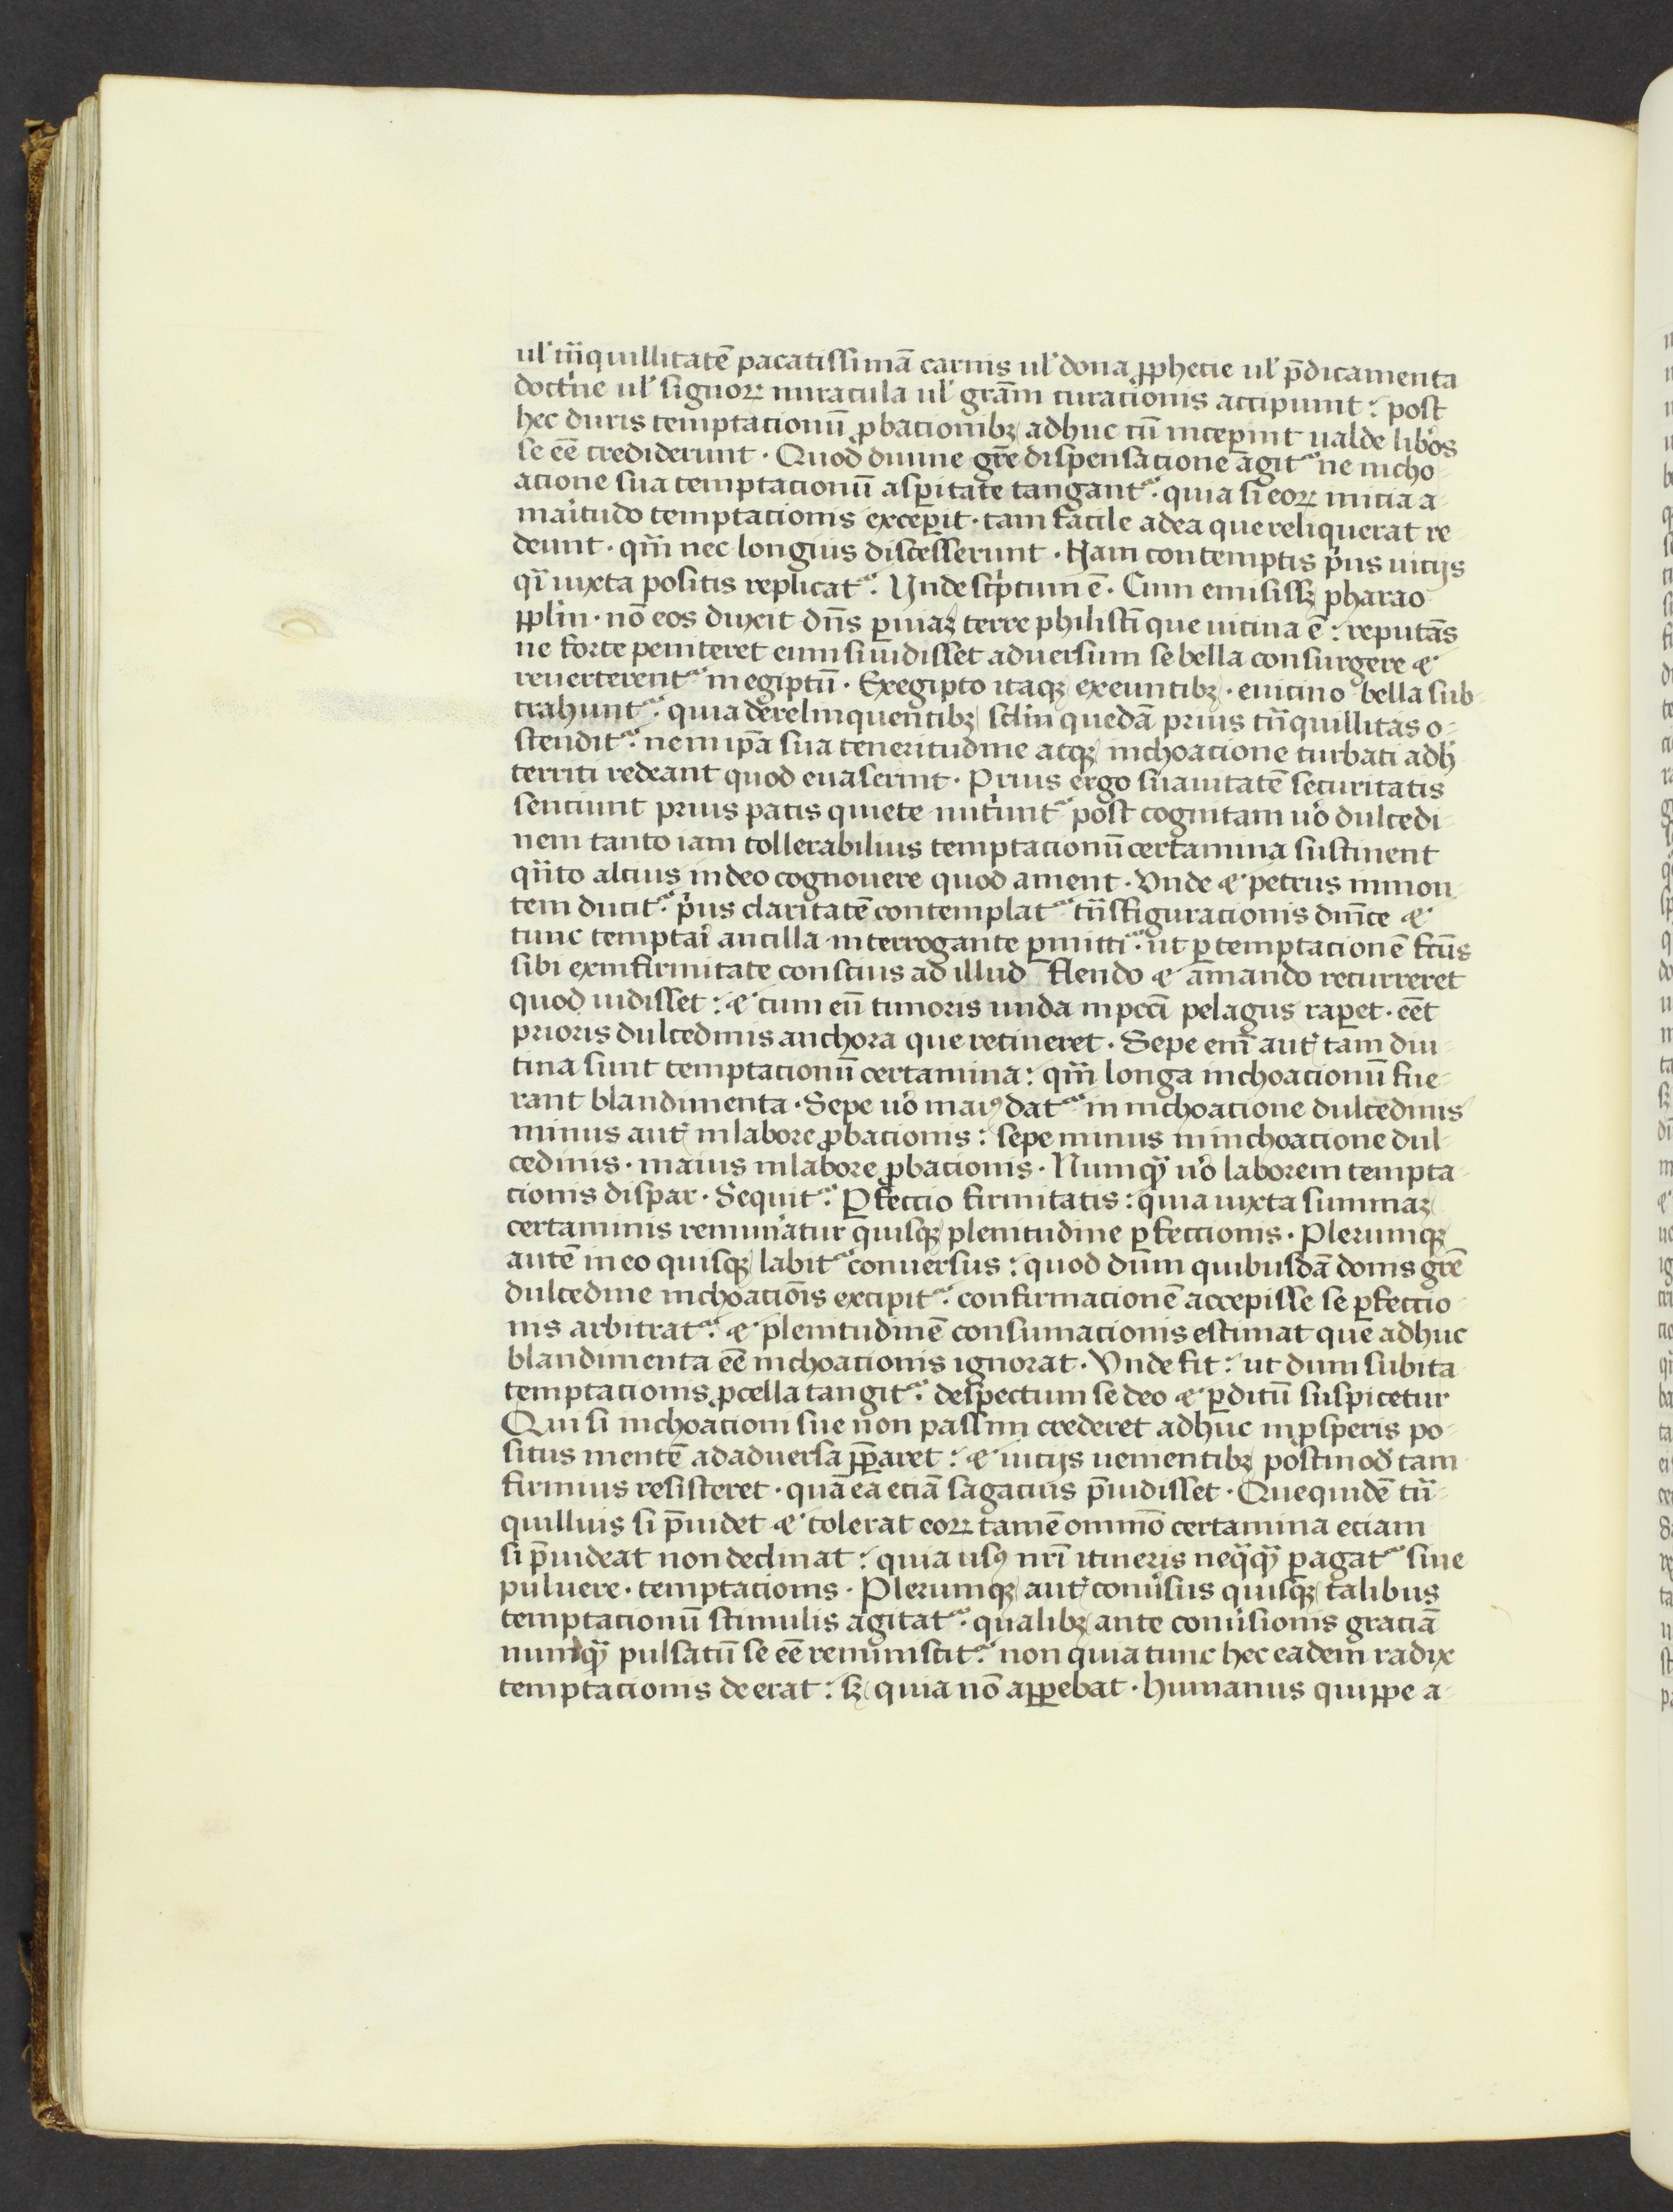 ul' tͣnquillitatē pacatissimā carnis ul' dona ꝓphecie ul' p̄dicamenta
doctͥne ul' signoꝝ miracula ul' grām curacionis accipiunt: post
hec duris temptacionū ꝓbacionibꝫ adhuc cū inceperint ualde lib'os
se eē crediderunt. Quod diuine grē dispensacione agit᷑ ne incho
acione sua temptacionū asꝑitate tangant᷑. quia si eoꝝ inicia a
maͥtudo temptacionis exceꝑit. tam facile adea que reliquerat re
deunt. qm̄ nec longius discesserunt. Nam contemptis pͥus uicijs
qͣi iuxta positis replicat᷑. Vnde scͥptum ē. Cum emisissꝫ pharao
ꝓplm̄. nō eos duxit dn̄s ꝑ uiaꝫ terre philistī que uicina ē: reputās
ne forte peniteret eum si uidisset aduersum se bella consurgere ⁊
reuerterent᷑ in egiptū. Exegipto itaqꝫ exeuntibꝫ. euicino bella sub
trahunt᷑. quia derelinquentibꝫ sclm̄ quedā prius tͣnquillitas o
stendit᷑. ne in ip̄a sua teneritudine atqꝫ inchoacione turbati adh'
territi redeant quod euaserint. Prius ergo suauitatē securitatis
senciunt prius pacis quiete nutͥunt᷑ post cognitam u'o dulcedi
nem tanto iam tollerabilius temptacionū certamina sustinent
qͣnto alcius in deo cognouere quod ament. Vnde ⁊ petrus in mon
tem ducit᷑. pͥus claritatē contemplat᷑ tͣnsfiguracionis dn̄ice ⁊
tunc temptaͥ ancilla interrogante ꝑmitti᷑. ut ꝑ temptacionē fctūs
sibi ex infirmitate conscius ad illud flendo ⁊ amando recurreret
quod uidisset: ⁊ cum eū timoris unda in pcc̄i pelagus raꝑet. eēt
prioris dulcedinis anchora que retineret. Sepe em̄ aut̄ tam diu
tina sunt temptacionū certamina: qm̄ longa inchoacionū fue
rant blandimenta. Sepe u'o maiꝰ dat᷑ in inchoacione dulcedinis
minus aut̄ in labore ꝓbacionis: sepe minus in inchoacione dul
cedinis. maius in labore ꝓbacionis. Numqͣꝫ u'o laborem tempta
cionis dispar. Sequit᷑. Ꝑfeccio firmitatis: quia iuxta summaꝫ
certaminis remun'atur quisqꝫ plenitudine ꝑfeccionis. Plerumqꝫ
autē in eo quisqꝫ labit᷑ conuersus: quod dum quibusdā donis grē
dulcedine inchoaciōis excipit᷑. confirmacionē accepisse se ꝑfeccio
nis arbitrat᷑. ⁊ plenitudinē consumacionis estimat que adhuc
blandimenta eē inchoacionis ignorat. Vnde fit: ut dum subita
temptacionis ꝓcella tangit᷑. despectum se deo ⁊ ꝑditū suspicetur
Qui si inchoacioni sue non passim crederet adhuc in ꝓsperis po
situs mentē ad aduersa p̄pararet: ⁊ uicijs uenientibꝫ postmod' tam
firmius resisteret. quā ea eciā sagacius p̄uidisset. Que quidē tͣn
quillius si p̄uidet ⁊ tolerat eoꝝ tamē omnīo certamina eciam
si p̄uideat non declinat: quia usꝰ nrī itineris neqͣqͣꝫ ꝑagat᷑ sine
puluere. temptacionis. Plerumqꝫ aut̄ conu'sus quisqꝫ talibus
temptacionū stimulis agitat᷑. qualibꝫ ante conu'sionis graciā
numqͣꝫ pulsatū se eē reminiscit᷑. non quia tunc hec eadem radix
temptacionis deerat: sꝫ quia nō apꝑebat. humanus quippe a